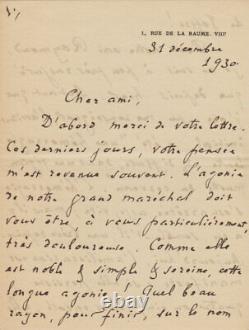 1, RUE DE LA BAUME. VIIIᵉ
31 décembre
1930
Cher ami,
D'abord merci de votre lettre.
Ces derniers jours, votre pensée
m'est revenue souvent. L'agonie
de notre grand maréchal doit
vous être, à vous particulièrement,
très douloureuse. Comme elle
est noble & simple & sereine, cette
longue agonie ! Quel beau
rayon, pour finir, sur le nom